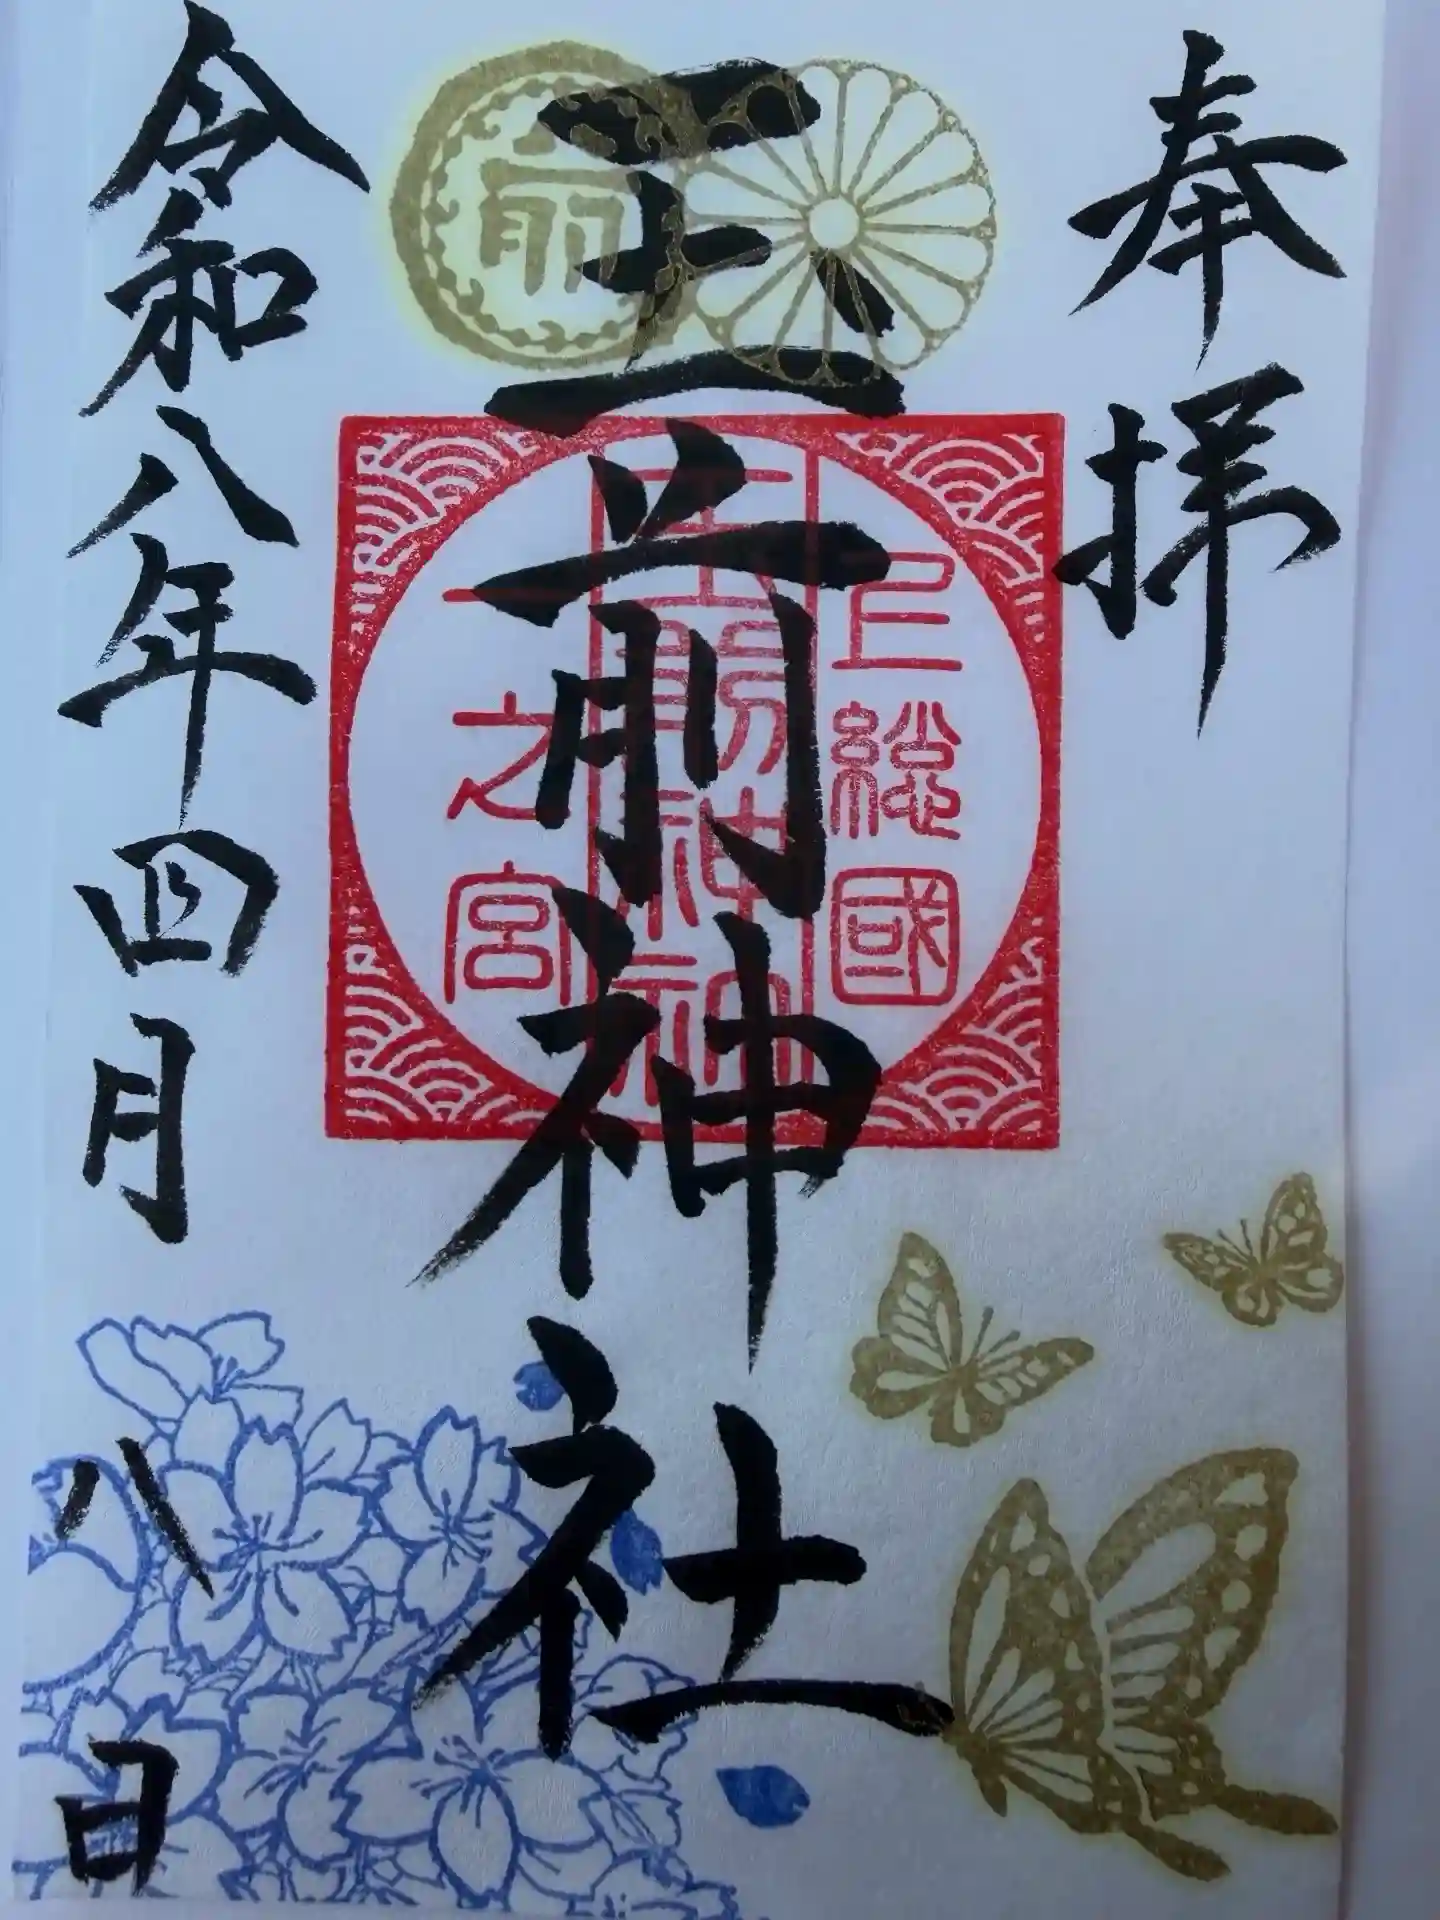 奉拝
玉前神社
上総國
玉前神社
一之宮
前
令和八年四月八日